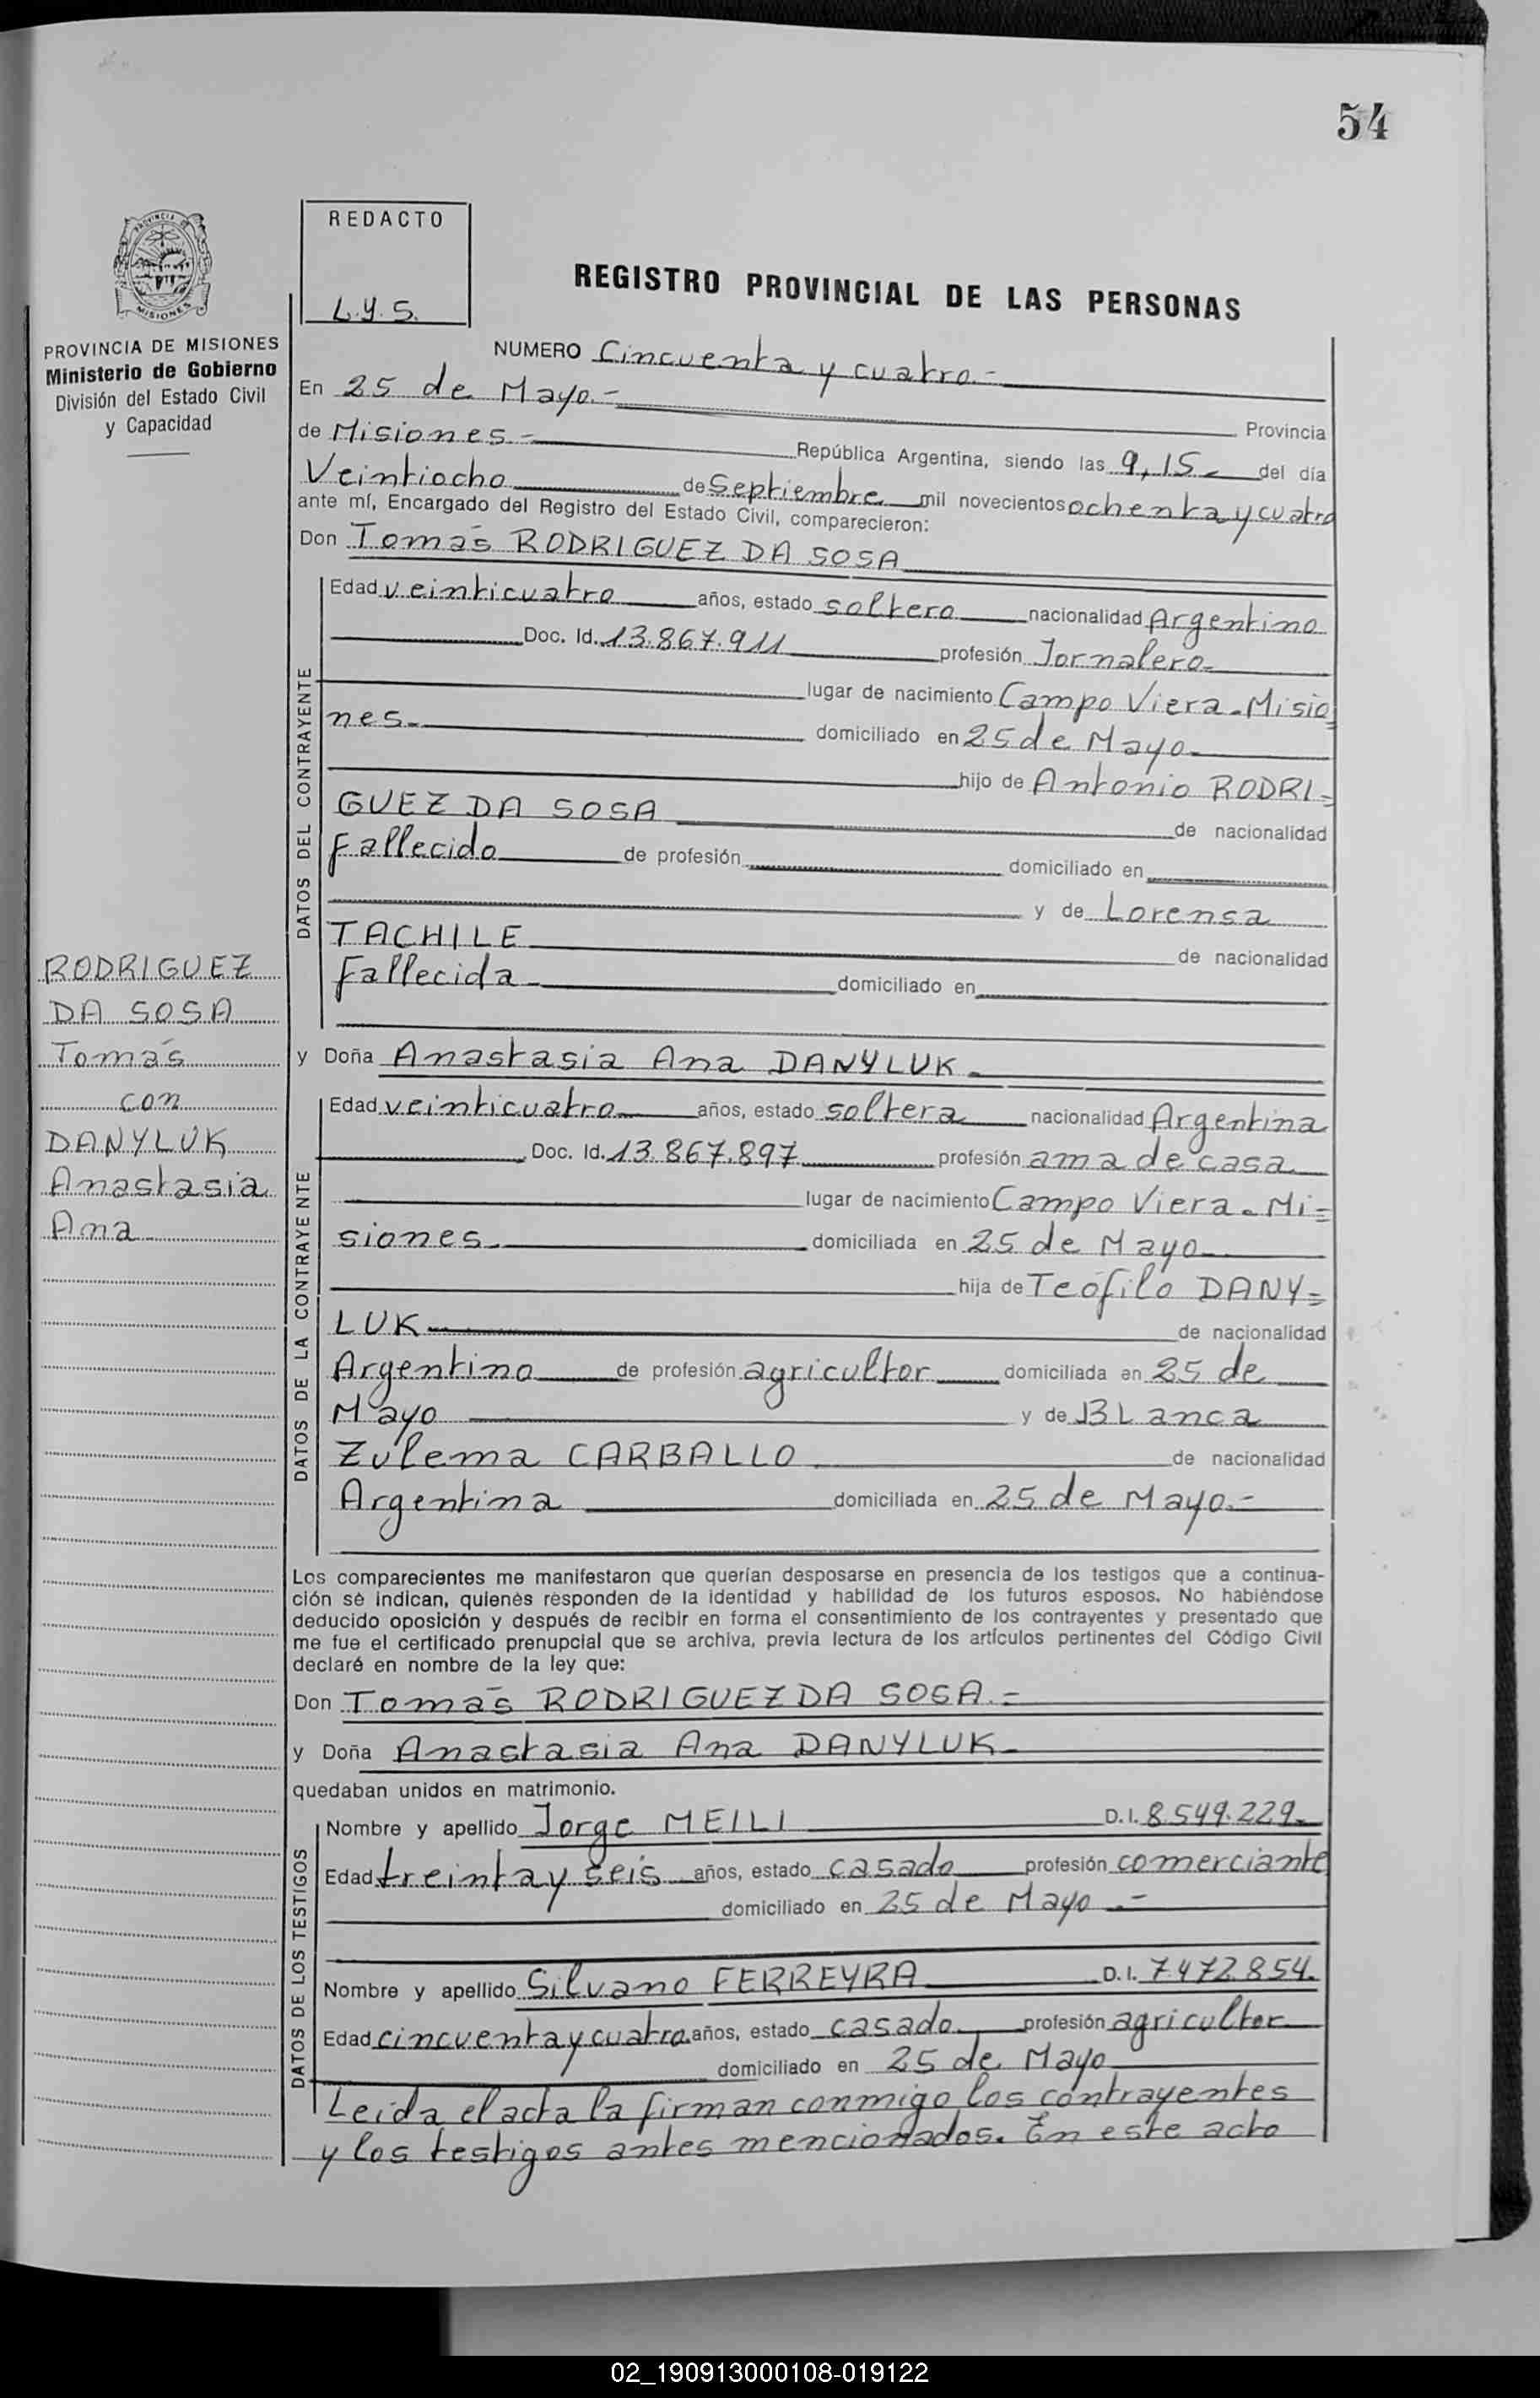 54
REDACTO
L.Y.S.
REGISTRO PROVINCIAL DE LAS PERSONAS
PROVINCIA DE MISIONES
Ministerio de Gobierno
División del Estado Civil
y Capacidad
NUMERO Cincuenta y cuatro.-
En 25 de Mayo.- Provincia
de Misiones.- República Argentina, siendo las 9,15- del día
Veintiocho de Septiembre mil novecientos ochenta y cuatro
ante mí, Encargado del Registro del Estado Civil, comparecieron:
Don Tomás RODRIGUEZ DA SOSA
DATOS DEL CONTRAYENTE
Edad veinticuatro años, estado soltero nacionalidad Argentino
Doc. Id. 13.867.911 profesión Jornalero-
lugar de nacimiento Campo Viera-Misio
nes- domiciliado en 25 de Mayo-
hijo de Antonio RODRI=
GUEZ DA SOSA de nacionalidad
Fallecido de profesión domiciliado en
y de Lorensa
TACHILE de nacionalidad
Fallecida- domiciliado en
RODRIGUEZ
DA SOSA
Tomás
con
DANYLUK
Anastasia
Ana
y Doña Anastasia Ana DANYLUK-
DATOS DE LA CONTRAYENTE
Edad veinticuatro años, estado soltera nacionalidad Argentina
Doc. Id. 13.867.897 profesión ama de casa
lugar de nacimiento Campo Viera-Mi=
siones- domiciliada en 25 de Mayo-
hija de Teófilo DANY=
LUK de nacionalidad
Argentino de profesión agricultor domiciliada en 25 de
Mayo y de BLanca
Zulema CARBALLO de nacionalidad
Argentina domiciliada en 25 de Mayo.-
Los comparecientes me manifestaron que querían desposarse en presencia de los testigos que a continua-
ción se indican, quienes responden de la identidad y habilidad de los futuros esposos. No habiéndose
deducido oposición y después de recibir en forma el consentimiento de los contrayentes y presentado que
me fue el certificado prenupcial que se archiva, previa lectura de los artículos pertinentes del Código Civil
declaré en nombre de la ley que:
Don Tomás RODRIGUEZ DA SOSA.=
y Doña Anastasia Ana DANYLUK-
quedaban unidos en matrimonio.
DATOS DE LOS TESTIGOS
Nombre y apellido Jorge MEILI D.I. 8.549.229-
Edad treinta y seis años, estado casado profesión comerciante
domiciliado en 25 de Mayo.-
Nombre y apellido Silvano FERREYRA D.I. 7.472.854.
Edad cincuenta y cuatro años, estado casado profesión agricultor
domiciliado en 25 de Mayo
Leída el acta la firman conmigo los contrayentes
y los testigos antes mencionados. En este acto
02_190913000108-019122